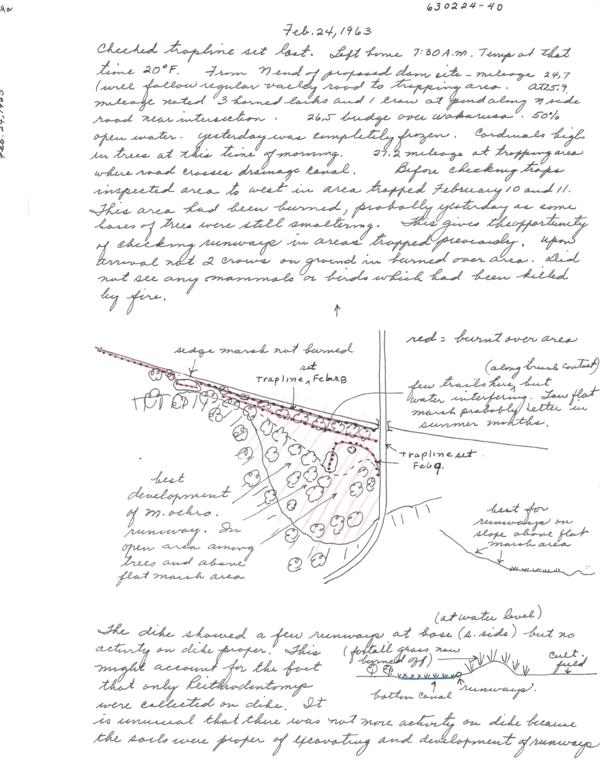 630224-40
Feb. 24, 1963
Checked trapline set last. Left home 7:30 A.M. Temp at that
time 20°F. From N end of proposed dam site - mileage 24.7
I will follow regular valley road to trapping area. At 25.9
mileage noted 3 horned larks and 1 crow at pond along N side
road near intersection. 26.5 bridge over wakarusa. 50%
open water. Yesterday was completely frozen. Cardinals high
in trees at this time of morning. 27.2 mileage at trapping area
where road crosses drainage canal. Before checking traps
inspected area to west in area trapped February 10 and 11.
This area had been burned, probably yesterday as some
bases of trees were still smoldering. This gives the opportunity
of checking runways in areas trapped previously. Upon
arrival not 2 crows on ground in burned over area. Did
not see any mammals or birds which had been killed
by fire.
red = burnt over area
sedge marsh not burned
set
Trapline, Feb
(along brush contact)
few trails here, but
water interfering. Low flat
marsh probably better in
summer months.
Trapline set
Feb 9.
best
development
of M. ochro.
runway. In
open area among
trees and above
flat marsh area
best for
runways on
slope above flat
marsh area
The dike showed a few runways at base (s. side) but no
(at water level)
activity on dike proper. This
(for tall grass now
burned off)
might account for the fact
that only Reithrodontomys
were collected on dike. It
cult.
field
bottom canal
runways
is unusual that there was not more activity on dike because
the soils were proper of excavating and development of runways
Feb. 24, 1963